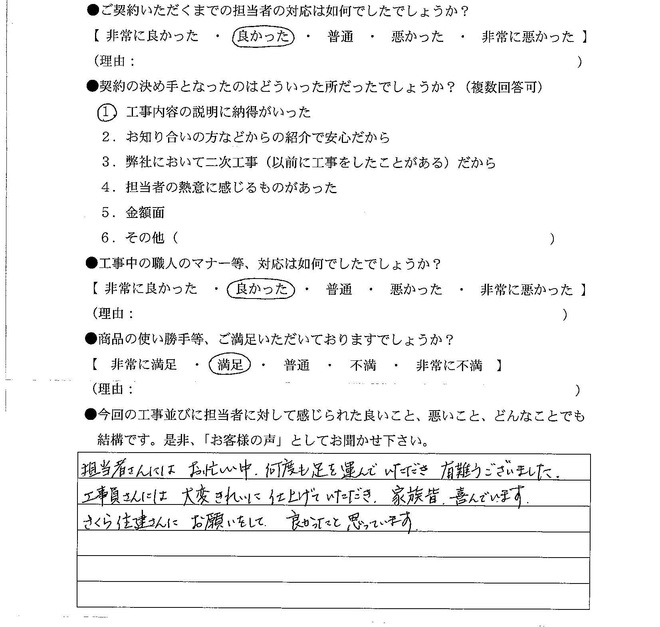 ●ご契約いただくまでの担当者の対応は如何でしたでしょうか？
【 非常に良かった ・ 良かった ・ 普通 ・ 悪かった ・ 非常に悪かった 】
（理由： ）
●契約の決め手となったのはどういった所だったでしょうか？（複数回答可）
1. 工事内容の説明に納得がいった
2．お知り合いの方などからの紹介で安心だから
3．弊社において二次工事（以前に工事をしたことがある）だから
4．担当者の熱意に感じるものがあった
5．金額面
6．その他（ ）
●工事中の職人のマナー等、対応は如何でしたでしょうか？
【 非常に良かった ・ 良かった ・ 普通 ・ 悪かった ・ 非常に悪かった 】
（理由： ）
●商品の使い勝手等、ご満足いただいておりますでしょうか？
【 非常に満足 ・ 満足 ・ 普通 ・ 不満 ・ 非常に不満 】
（理由： ）
●今回の工事並びに担当者に対して感じられた良いこと、悪いこと、どんなことでも
結構です。是非、「お客様の声」としてお聞かせ下さい。
担当者さんには お忙い中、何度も足を運んでいただき 有難うございました。
工事員さんには 大変きれいに仕上げていただき、家族皆、喜んでいます。
さくら住建さんに お願いをして 良かったと 思っています。